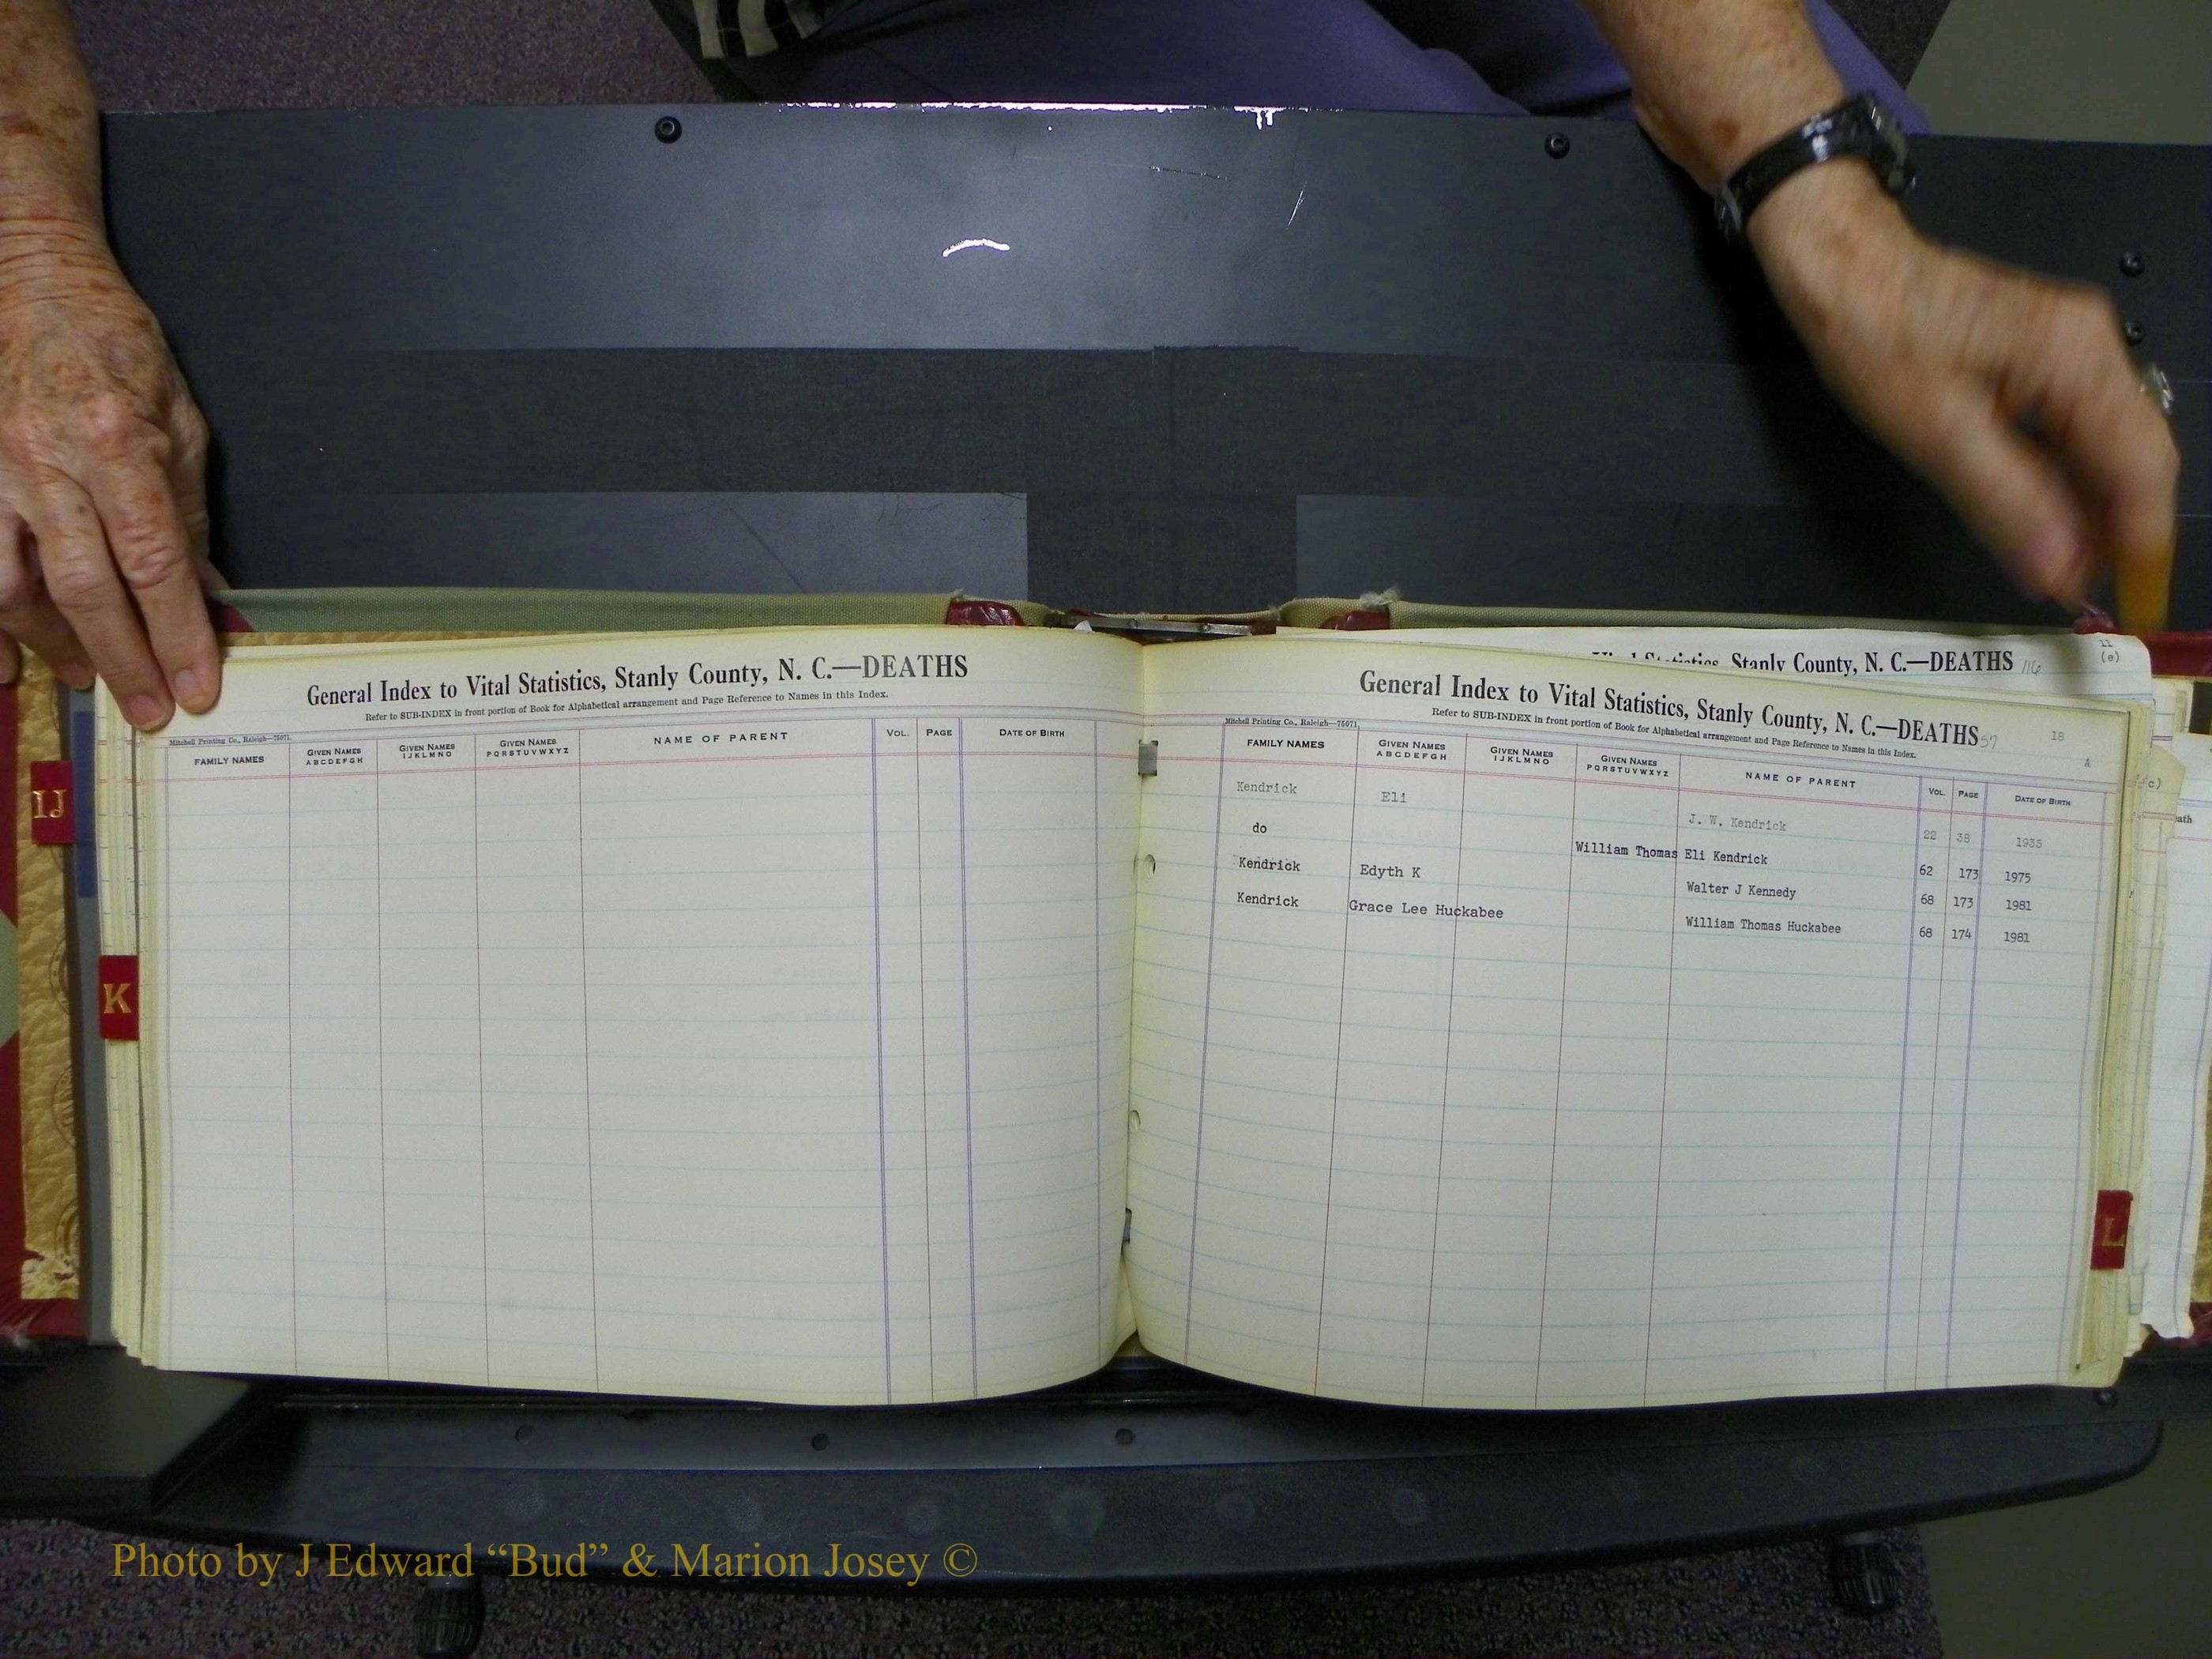 11
(e)
Stanly County, N. C.—DEATHS 116
General Index to Vital Statistics, Stanly County, N. C.—DEATHS
Refer to SUB-INDEX in front portion of Book for Alphabetical arrangement and Page Reference to Names in this Index.
Mitchell Printing Co., Raleigh—75071.
FAMILY NAMES GIVEN NAMES ABCDEFGH GIVEN NAMES IJKLMNO GIVEN NAMES PQRSTUVWXYZ NAME OF PARENT VOL. PAGE DATE OF BIRTH
IJ
K
General Index to Vital Statistics, Stanly County, N. C.—DEATHS 57 18
Refer to SUB-INDEX in front portion of Book for Alphabetical arrangement and Page Reference to Names in this Index. A
Mitchell Printing Co., Raleigh—75071.
FAMILY NAMES GIVEN NAMES ABCDEFGH GIVEN NAMES IJKLMNO GIVEN NAMES PQRSTUVWXYZ NAME OF PARENT VOL. PAGE DATE OF BIRTH
Kendrick Eli J. W. Kendrick 22 38 1935
do William Thomas Eli Kendrick 62 173 1975
Kendrick Edyth K Walter J Kennedy 68 173 1981
Kendrick Grace Lee Huckabee William Thomas Huckabee 68 174 1981
L
Photo by J Edward “Bud” & Marion Josey ©